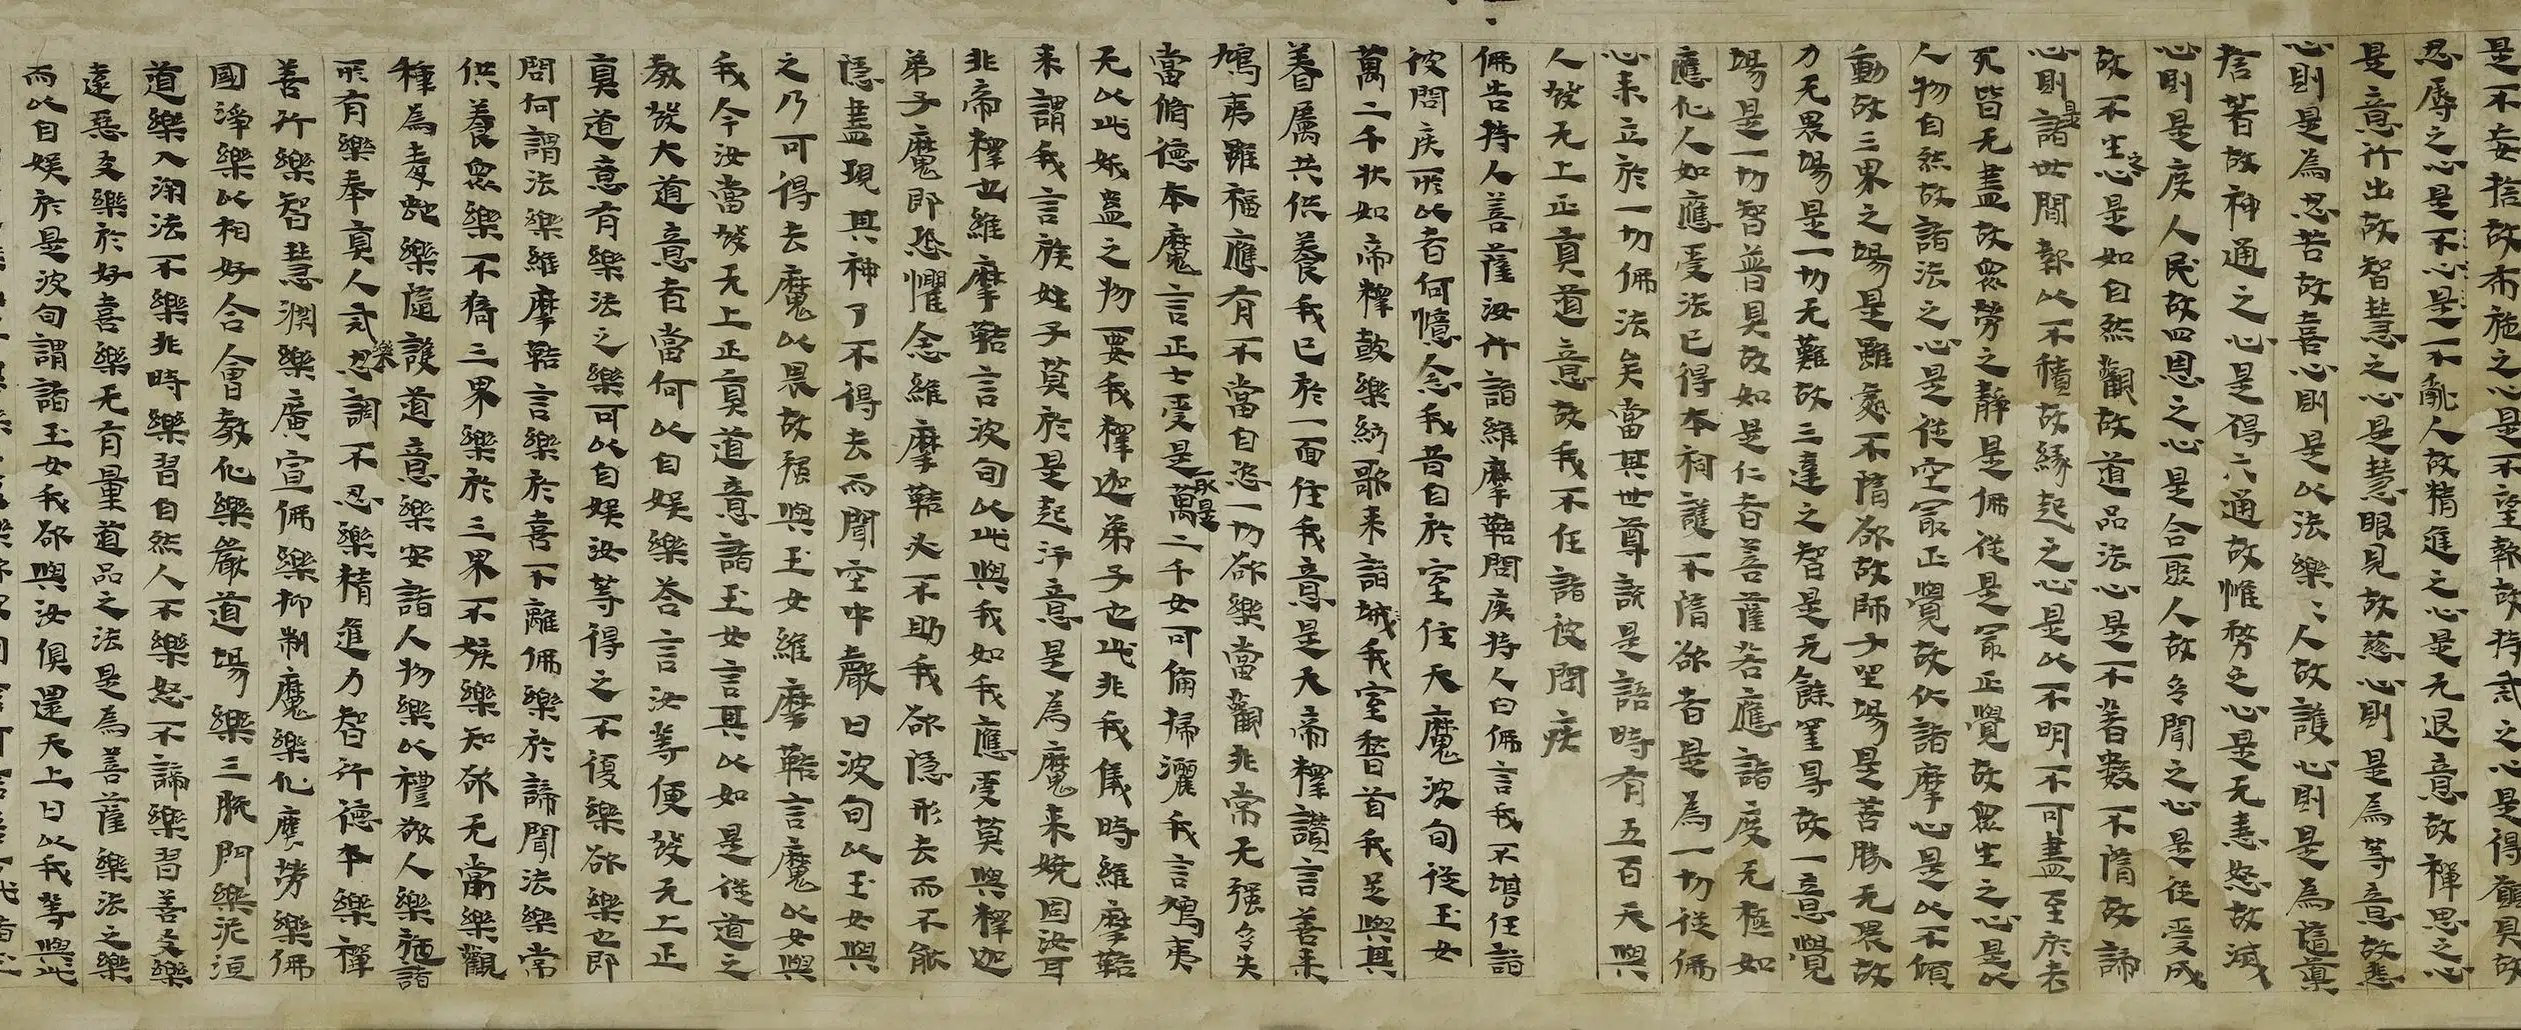 是不妄捨故布施之心是不望報故持戒之心是得願具故
忍辱之心是不心是一不亂人故精進之心是无退意故禪思之心
是意行出故智慧之心是慧眼見故慈心則是為等意故悲
心則是為忍苦故喜心則是以法樂〻人故護心則是為
捨著故神通之心是得六通故惟務之心是无恚怒故滅
心則是度人民故四恩之心是合聚人故多聞之心是從受成
故不生之心是如自然觀故道品法心是不著數不隋故諦
心則是諸世間報以不積故緣起之心是以不明不可盡至於老
死皆无盡故眾勞之靜是佛從是冣正覺故眾生之心是以
人物自然故諸法之心是從空冣正覺故伏諸摩心是以不傾
動故三界之場是雖處不隋欲故師子坐場是善勝无畏故
力无畏場是一切无難故三達之智是无餘罣㝵故一意覺
場是一切智普具故如是仁者菩薩若應諸度无極如
應化人如應受法已得本祠護不隋欲者是為一切從佛
心来立於一切佛法矣當其世尊說是語時有五百天與
人發无上正真道意故我不任詣彼問疾
佛告持人菩薩汝行詣維摩鞊問疾持人白佛言我不堪任詣
彼問疾所以者何憶念我昔自於室住天魔波旬從玉女
萬二千狀如帝釋鼓樂絃歌来詣我室稽首我足與其
眷属共供養我已於一面住我意是天帝釋讚言善来
鳩夷雖福應有不當自恣一切欲樂當觀非常无强多失
當脩德本魔言正士受是萬二千女可備掃灑我言鳩夷
无以此妖蠱之物要我釋迦弟子也此非我儀時維摩鞊
来謂我言族姓子莫於是起汙意是為魔来嬈固汝耳
非帝釋也維摩鞊言波旬以此與我如我應受莫與釋迦
弟子魔即恐懼念維摩鞊必不助我欲隱形去而不能
隱盡現其神了不得去而聞空中聲曰波旬以玉女與
之乃可得去魔以畏故强與玉女維摩鞊言魔以女與
我今汝當發无上正真道意諸玉女言其以如是從道之
教發大道意者當何以自娱樂荅言汝等便發无上正
真道意有樂法之樂可以自娱汝等得之不復樂欲樂也即
問何謂法樂維摩鞊言樂於喜不離佛樂於諦聞法樂常
供養眾樂不猗三界樂於三界不嫉樂知欲无常樂觀
種為毒虵樂隨護道意樂安諸人物樂以禮敬人樂施諸
所有樂奉真人戒樂忍調不忍樂精進力智行德本樂禪
善行樂智慧渕樂廣宣佛樂抑制魔樂化塵勞樂佛
國淨樂以相好合會教化樂嚴道場樂三脫門樂泥洹
道樂入渕法不樂非時樂習自然人不樂怒不諦樂習善友樂
遠惡友樂於好喜樂无有量道品之法是為菩薩樂法之樂
而以自娱於是波旬謂諸玉女我欲與汝俱還天上曰以我等與此